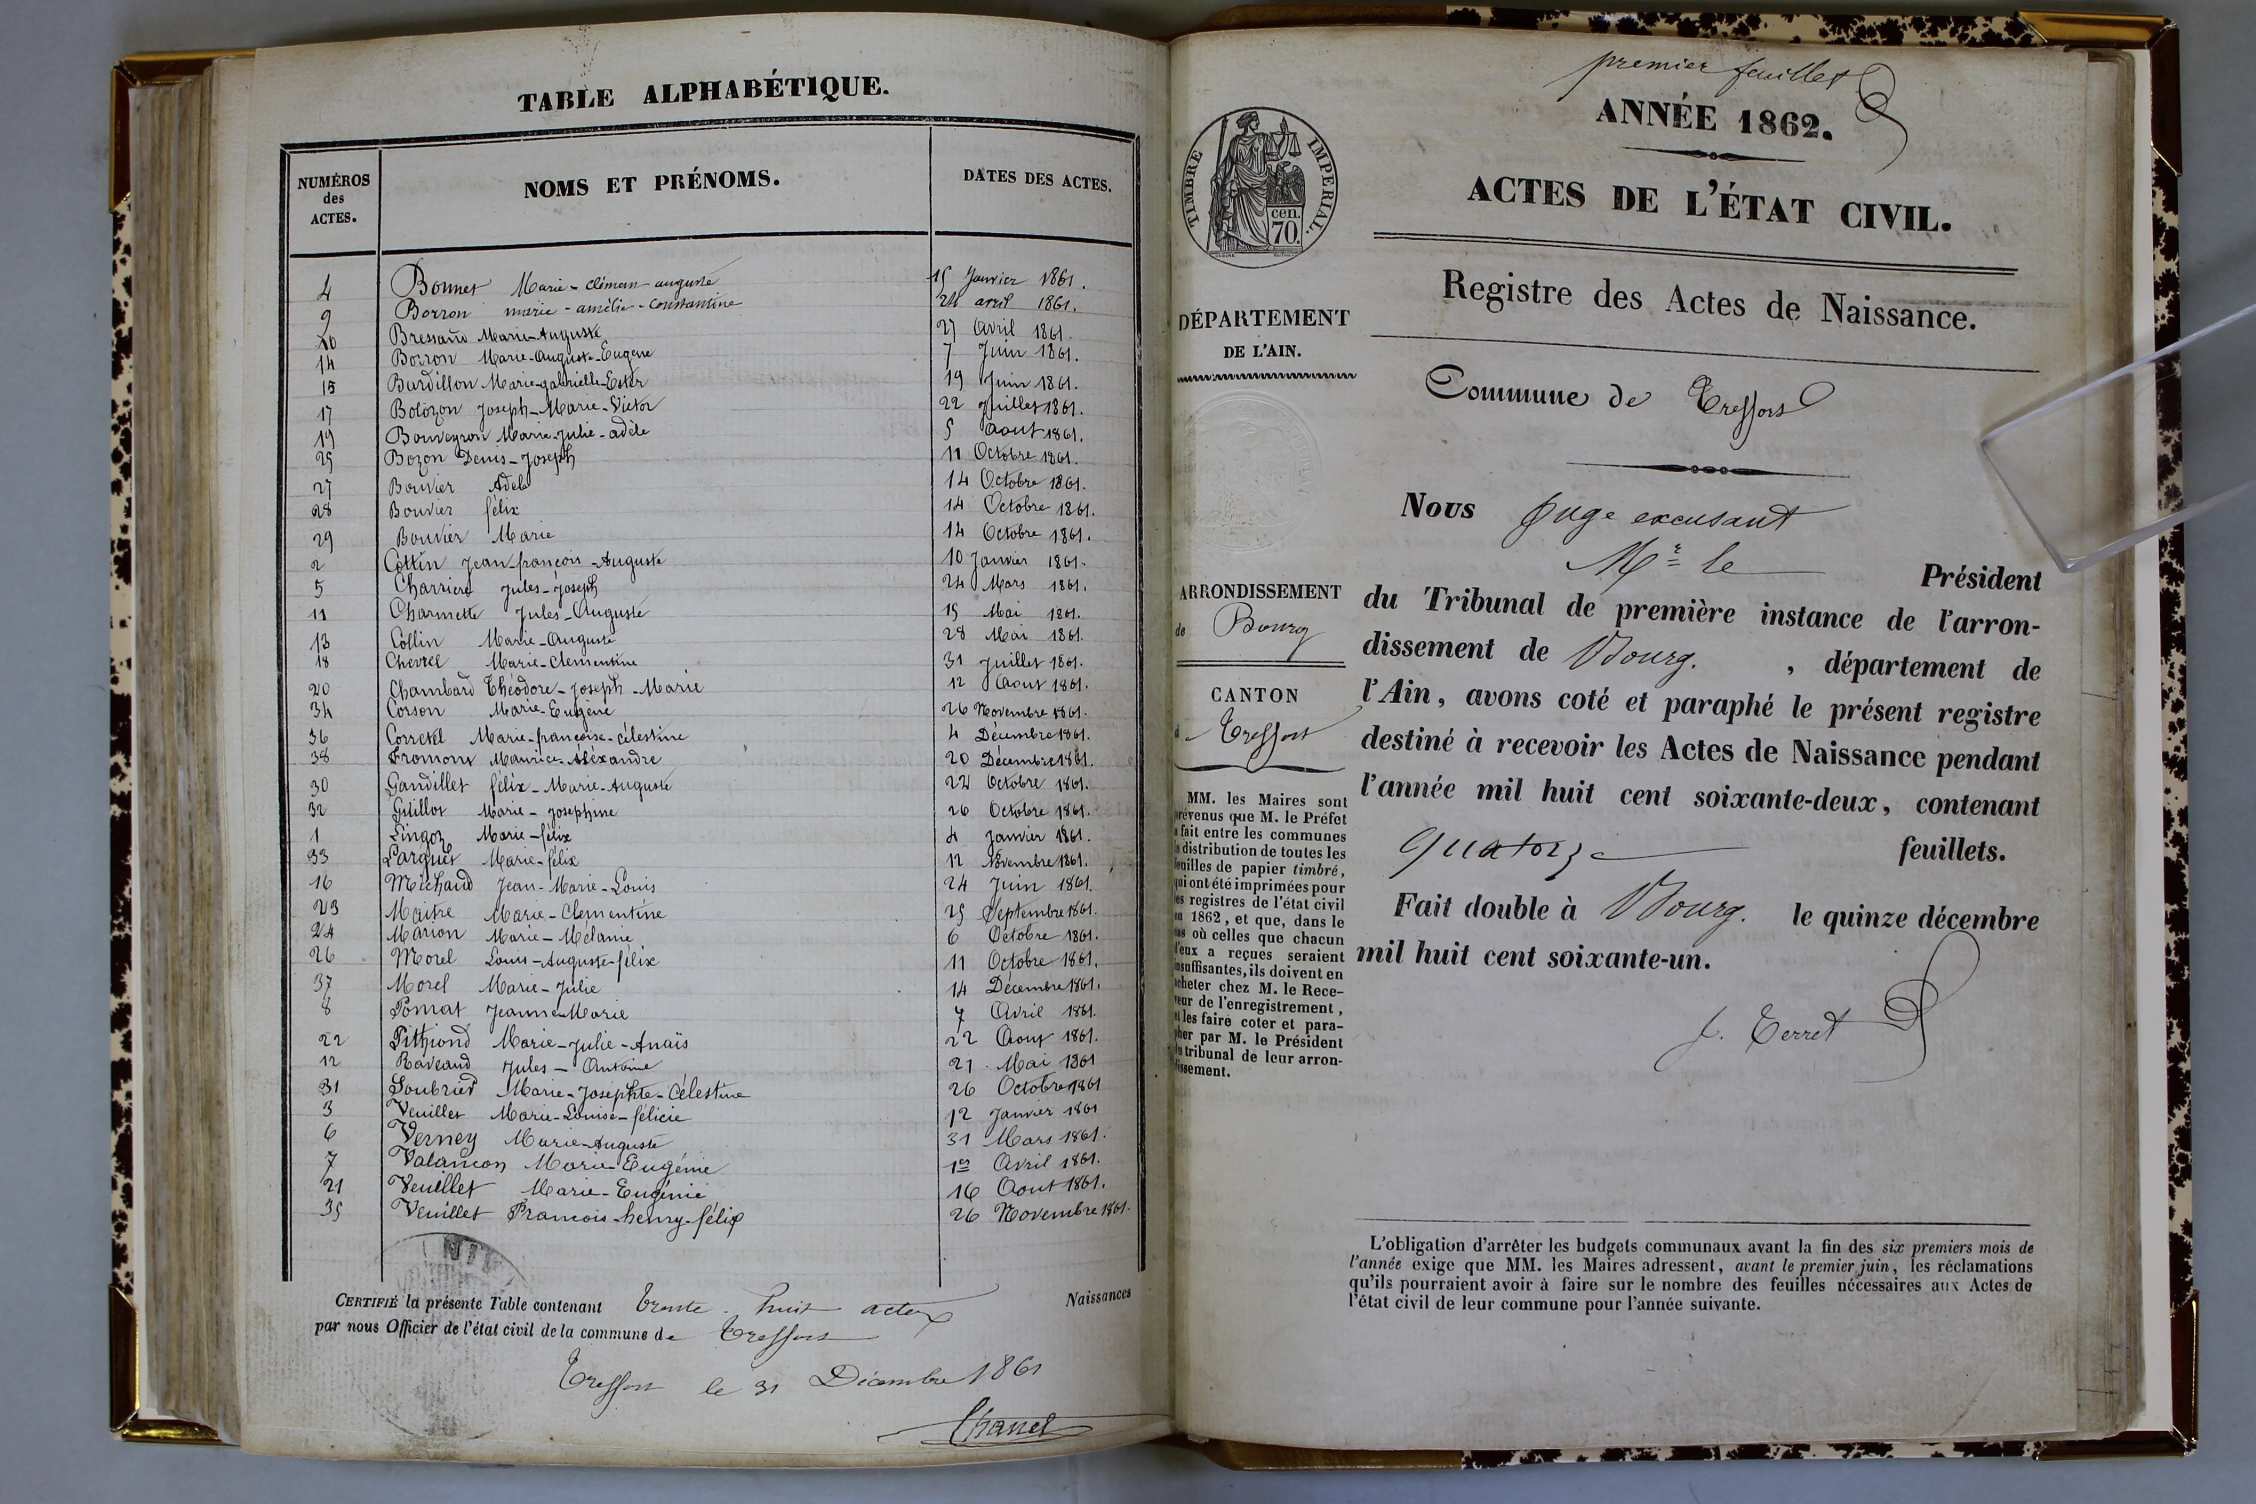 TABLE ALPHABÉTIQUE.
NUMÉROS des ACTES. NOMS ET PRÉNOMS. DATES DES ACTES.
4 Bonnet Marie-Clément auguste 15 Janvier 1861.
9 Borron marie-amélie-Constantine 24 avril 1861.
10 Bressand Marie-Auguste 27 Avril 1861.
14 Borron Marie-Auguste-Eugène 7 Juin 1861.
15 Burdillon Marie-gabrielle-Ester 19 Juin 1861.
17 Bolozon Joseph-Marie-Victor 22 Juillet 1861.
19 Bouveyron Marie-Julie-adèle 5 Aout 1861.
25 Bozon Denis-Joseph 11 Octobre 1861.
27 Bouvier Adele 14 Octobre 1861.
28 Bouvier félix 14 Octobre 1861.
29 Bouvier Marie 14 Octobre 1861.
2 Cottin Jean-françois-Auguste 10 Janvier 1861.
5 Charriere Jules-Joseph 24 Mars 1861.
11 Charmette Jules-Auguste 15 Mai 1861.
13 Collin Marie-Auguste 28 Mai 1861.
18 Chevrel Marie-Clementine 31 Juillet 1861.
20 Chambard Théodore-Joseph-Marie 12 Aout 1861.
34 Corson Marie-Eugène 26 Novembre 1861.
36 Corretel Marie-françoise-Célestine 4 Décembre 1861.
38 Fromont Maurice-Aléxandre 20 Décembre 1861.
30 Gandillet félix-Marie-Auguste 22 Octobre 1861.
32 Guillot Marie-Josephine 26 Octobre 1861.
1 Lingoz Marie-félix 4 Janvier 1861.
33 Larguet Marie-félix 12 Novembre 1861.
16 Michaud Jean-Marie-Louis 24 Juin 1861.
23 Maitre Marie-Clementine 25 Septembre 1861.
24 Marion Marie-Mélanie 6 Octobre 1861.
26 Morel Louis-Auguste-félix 11 Octobre 1861.
37 Morel Marie-Julie 14 Décembre 1861.
8 Pomat Jeanne-Marie 7 Avril 1861.
22 Pithiond Marie-Julie-Anaïs 22 Aout 1861.
12 Raveaud Jules-Antoine 21 Mai 1861
31 Soubrier Marie-Josephte-Célestine 26 Octobre 1861
3 Veuillet Marie-Louise-félicie 12 Janvier 1861
6 Verney Marie-Auguste 31 Mars 1861.
7 Valançon Marie-Eugénie 1er Avril 1861.
21 Veuillet Marie-Eugénie 16 Aout 1861.
35 Veuillet François-henry-félix 26 Novembre 1861.
CERTIFIÉ la présente Table contenant trente-huit actes Naissances
par nous Officier de l'état civil de la commune de Treffort
Treffort le 31 Décembre 1861
Chanel
premier feuillet
ANNÉE 1862.
ACTES DE L'ÉTAT CIVIL.
Registre des Actes de Naissance.
TIMBRE IMPERIAL.
cen.
70.
DÉPARTEMENT
DE L'AIN.
ARRONDISSEMENT
de Bourg
CANTON
Treffort
MM. les Maires sont
prévenus que M. le Préfet
a fait entre les communes
la distribution de toutes les
feuilles de papier timbré,
qui ont été imprimées pour
les registres de l'état civil
en 1862, et que, dans le
cas où celles que chacun
d'eux a reçues seraient
insuffisantes, ils doivent en
acheter chez M. le Rece-
veur de l'enregistrement,
et les faire coter et para-
pher par M. le Président
du tribunal de leur arron-
dissement.
Commune de Treffort
Nous Juge excusant
Mr le Président
du Tribunal de première instance de l'arron-
dissement de Bourg. , département de
l'Ain, avons coté et paraphé le présent registre
destiné à recevoir les Actes de Naissance pendant
l'année mil huit cent soixante-deux, contenant
quatorze feuillets.
Fait double à Bourg. le quinze décembre
mil huit cent soixante-un.
J. Terret
L'obligation d'arrêter les budgets communaux avant la fin des six premiers mois de
l'année exige que MM. les Maires adressent, avant le premier juin, les réclamations
qu'ils pourraient avoir à faire sur le nombre des feuilles nécessaires aux Actes de
l'état civil de leur commune pour l'année suivante.